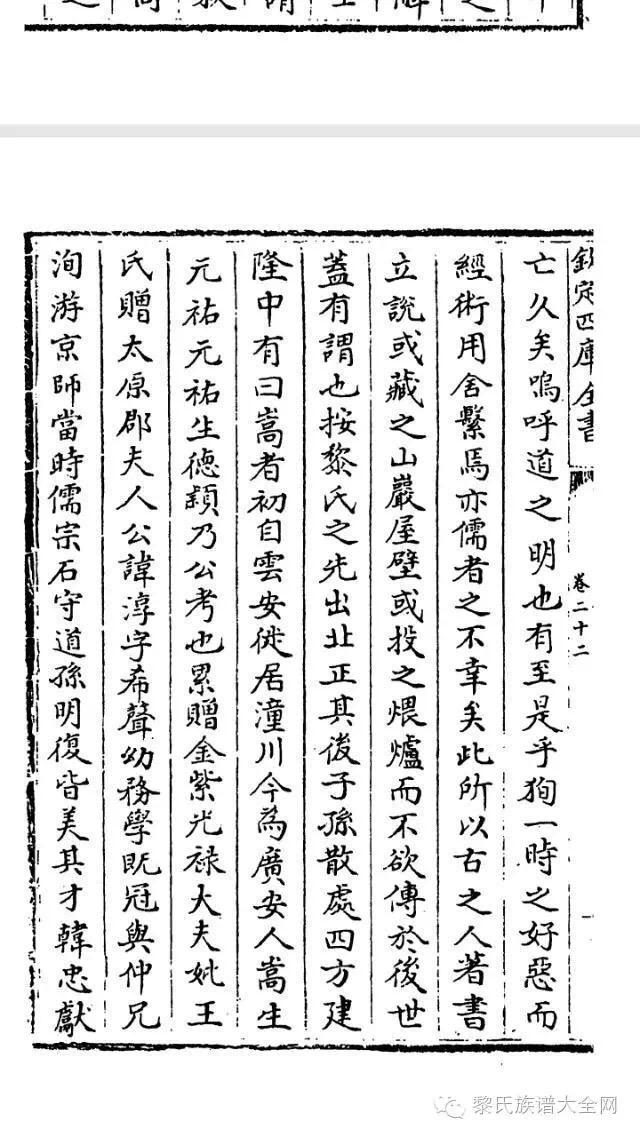 欽定四庫全書
卷二十二
亡久矣嗚呼道之明也有至是乎狥一時之好惡而
經術用舍繫焉亦儒者之不幸矣此所以古之人著書
立說或藏之山巖屋壁或投之煨爐而不欲傳於後世
蓋有謂也按黎氏之先出北正其後子孫散處四方建
隆中有曰嵩者初自雲安徙居潼川今為廣安人嵩生
元祐元祐生德頴乃公考也累贈金紫光祿大夫妣王
氏贈太原郡夫人公諱淳字希聲幼務學既冠與仲兄
洵游京師當時儒宗石守道孫明復皆美其才韓忠獻
黎氏族谱大全网